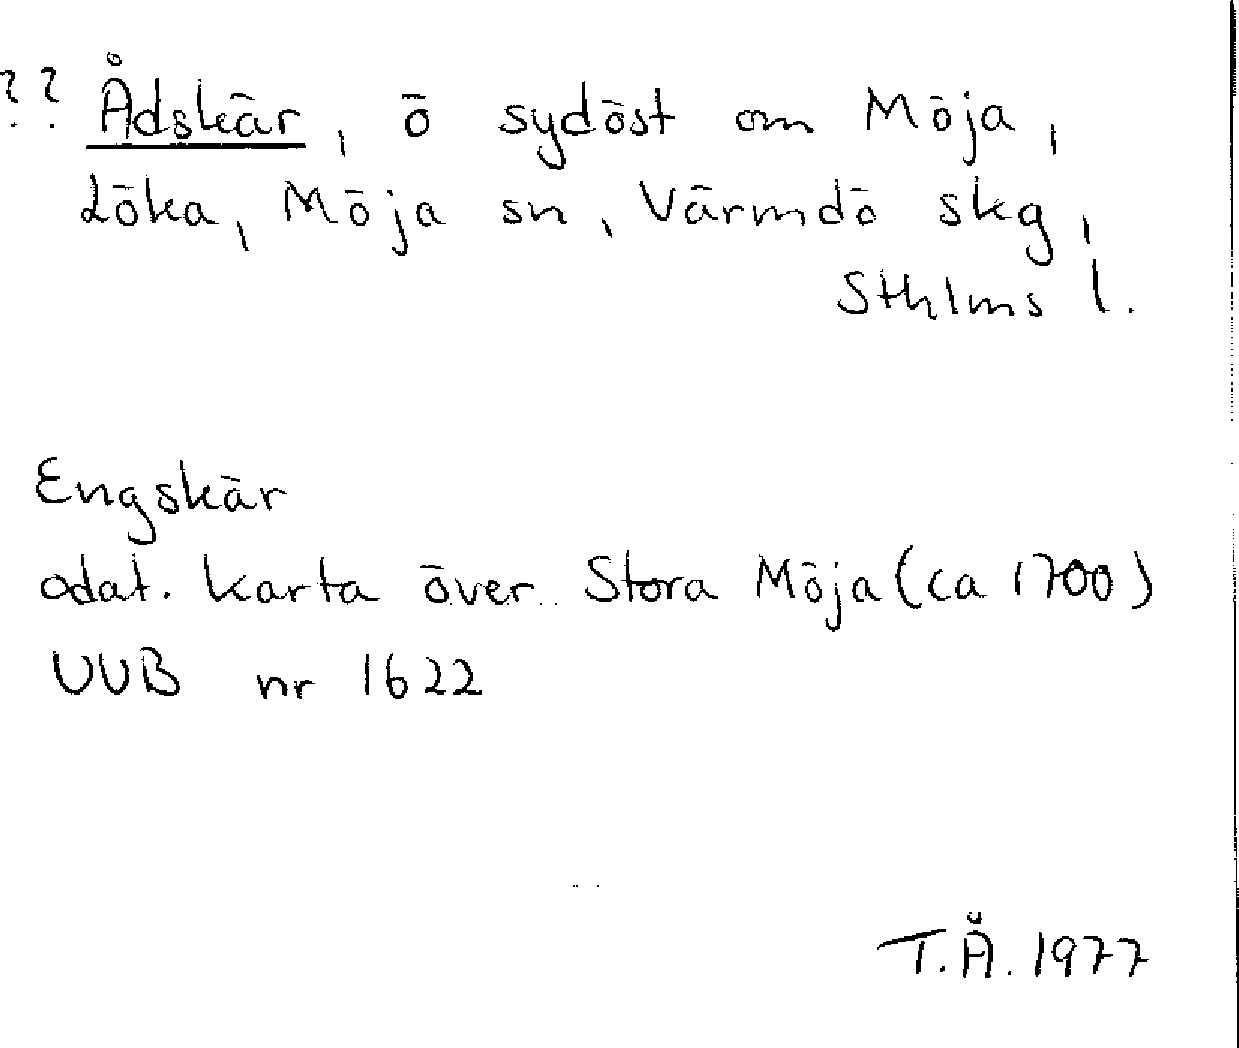 ?? Ådskär, ö sydöst om Möja,
Löka, Möja sn, Värmdö skg,
Sthlms l.
Engskär
odat. karta över Stora Möja (ca 1700)
UUB nr 1622
T.Å. 1977